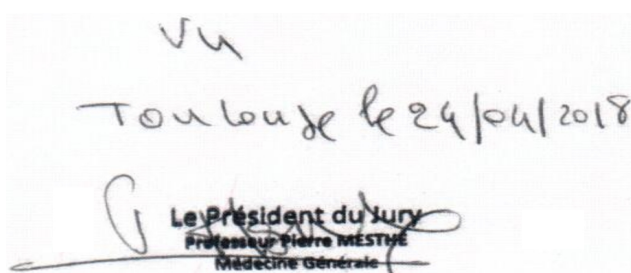 Vu
Toulouse le 24/04/2018
Le Président du Jury
Professeur Pierre MESTHÉ
Médecine Générale